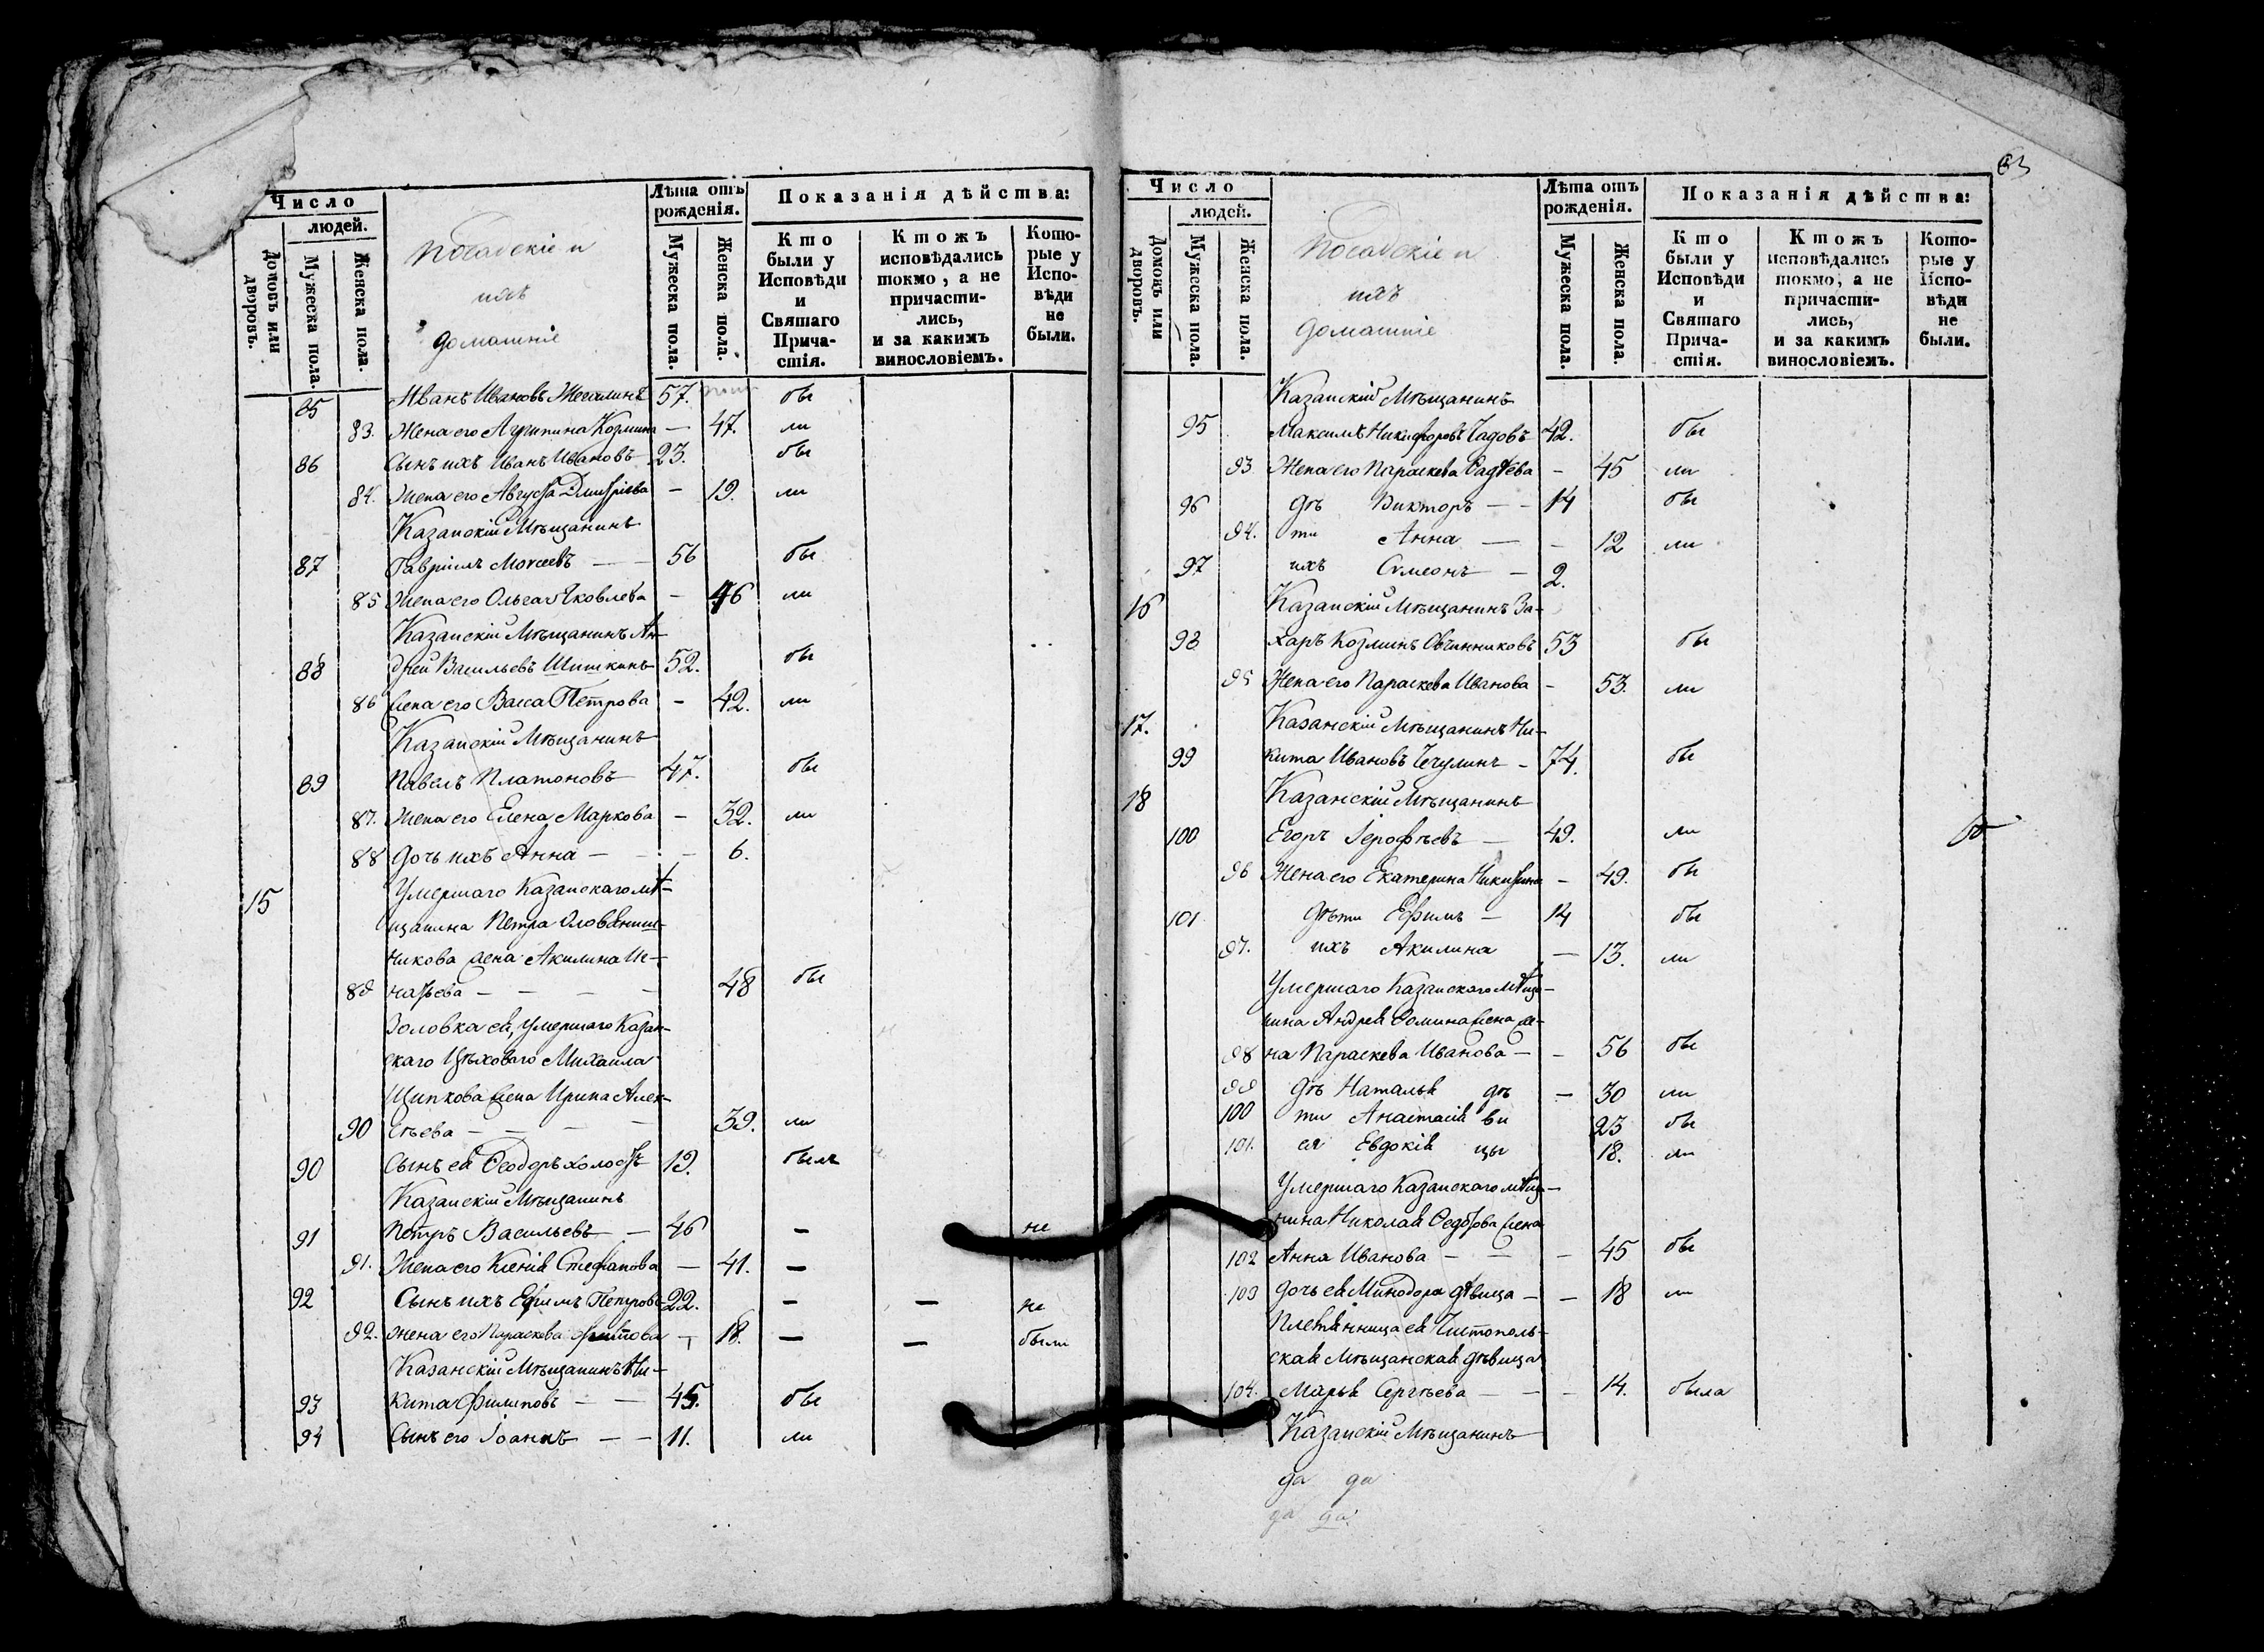 Число
людей.
Домовъ или дворовъ.
Мужеска пола.
Женска пола.
Посадскіе и
ихъ
домашніе
Лѣта отъ рожденія.
Мужеска пола.
Женска пола.
Показанія дѣйства:
Кто были у Исповѣди и Святаго Прича- стія.
Ктожъ исповѣдались токмо, а не причасти- лись, и за какимъ винословіемъ.
Кото- рые у Испо- вѣди не были.
85 Иванъ Ивановъ 57. бы
83. Жена его Агрипина Козмина — 47. ли
86 Сынъ ихъ Иванъ Ивановъ 23. бы
84. Жена его Августа Дмитріева — 19. ли
Казанскій Мѣщанинъ
87 Гавріилъ Моѵсеевъ — — 56 бы
85 Жена его Ольга Яковлева — 46 ли
Казанскій Мѣщанинъ Ан-
88 дрей Васильевъ Шишкинъ 52. бы
86 Жена его Васса Петрова — 42. ли
Казанскій Мѣщанинъ
89 Павелъ Платоновъ 47. бы
87. Жена его Елена Маркова — 32. ли
88 дочь ихъ Анна — — — 6.
15 Умершаго Казанскаго мѣ-
щанина Петра
никова жена Акилина Иг-
89 натьева — — — — 48 бы
Золовка ея, умершаго Казан-
скаго Цѣховаго Михаила
Щипкова жена Ирина Алек-
90 сѣева — — — — 39. ли
90 Сынъ ея Ѳеодоръ холостъ 19. былъ
Казанскій Мѣщанинъ
91 Петръ Васильевъ — 46 — не
91. Жена его Ксенія Стефанова — 41. —
92 Сынъ ихъ Ефимъ Петровъ 22. — — не
92. жена его Параскева — 18. — — были
Казанскій Мѣщанинъ Ни-
93 кита Филиповъ — — 45. бы
94 Сынъ его Іоаннъ — — 11. ли
63
Число
людей.
Домовъ или дворовъ.
Мужеска пола.
Женска пола.
Посадскіе и
ихъ
домашніе
Лѣта отъ рожденія.
Мужеска пола.
Женска пола.
Показанія дѣйства:
Кто были у Исповѣди и Святаго Прича- стія.
Ктожъ исповѣдались токмо, а не причасти- лись, и за какимъ винословіемъ.
Кото- рые у Испо- вѣди не были.
Казанскій Мѣщанинъ
95 Максимъ Никифоровъ Чадовъ 42. бы
93 Жена его Параскева — 45 ли
96 дѣ Викторъ — — 14 бы
94. ти Анна — — 12 ли
97 ихъ Сѵмеонъ — 2.
16 Казанскій Мѣщанинъ За-
98 харъ Козминъ Овчинниковъ 53 бы
95 Жена его Параскева Иванова — 53. ли
17. Казанскій Мѣщанинъ Ни-
99 кита Ивановъ Чечулинъ — 74. бы
18 Казанскій Мѣщанинъ
100 Егоръ Іерофѣевъ — 49. ли
96 Жена его Екатерина Никитина — 49. бы
101 дѣти Ефимъ — 14 бы
97. ихъ Акилина — 13. ли
Умершаго Казанскаго мѣща-
нина Андрея Ѳомина жена же-
98 на Параскева Иванова — — 56 бы
99 дѣ Наталья дѣ — 30 ли
100 ти Анастасія ви 23 бы
101. ея Евдокія цы 18. ли
Умершаго Казанскаго мѣща-
нина Николая Ѳедорова жена
102 Анна Иванова — — — 45 бы
103 дочь ея Минодора дѣвица — — 18 ли
Племянница ея Чистополь-
ская Мѣщанская дѣвица
104. Марья Сергѣева — — — 14. была
Казанскій Мѣщанинъ
да да
да да